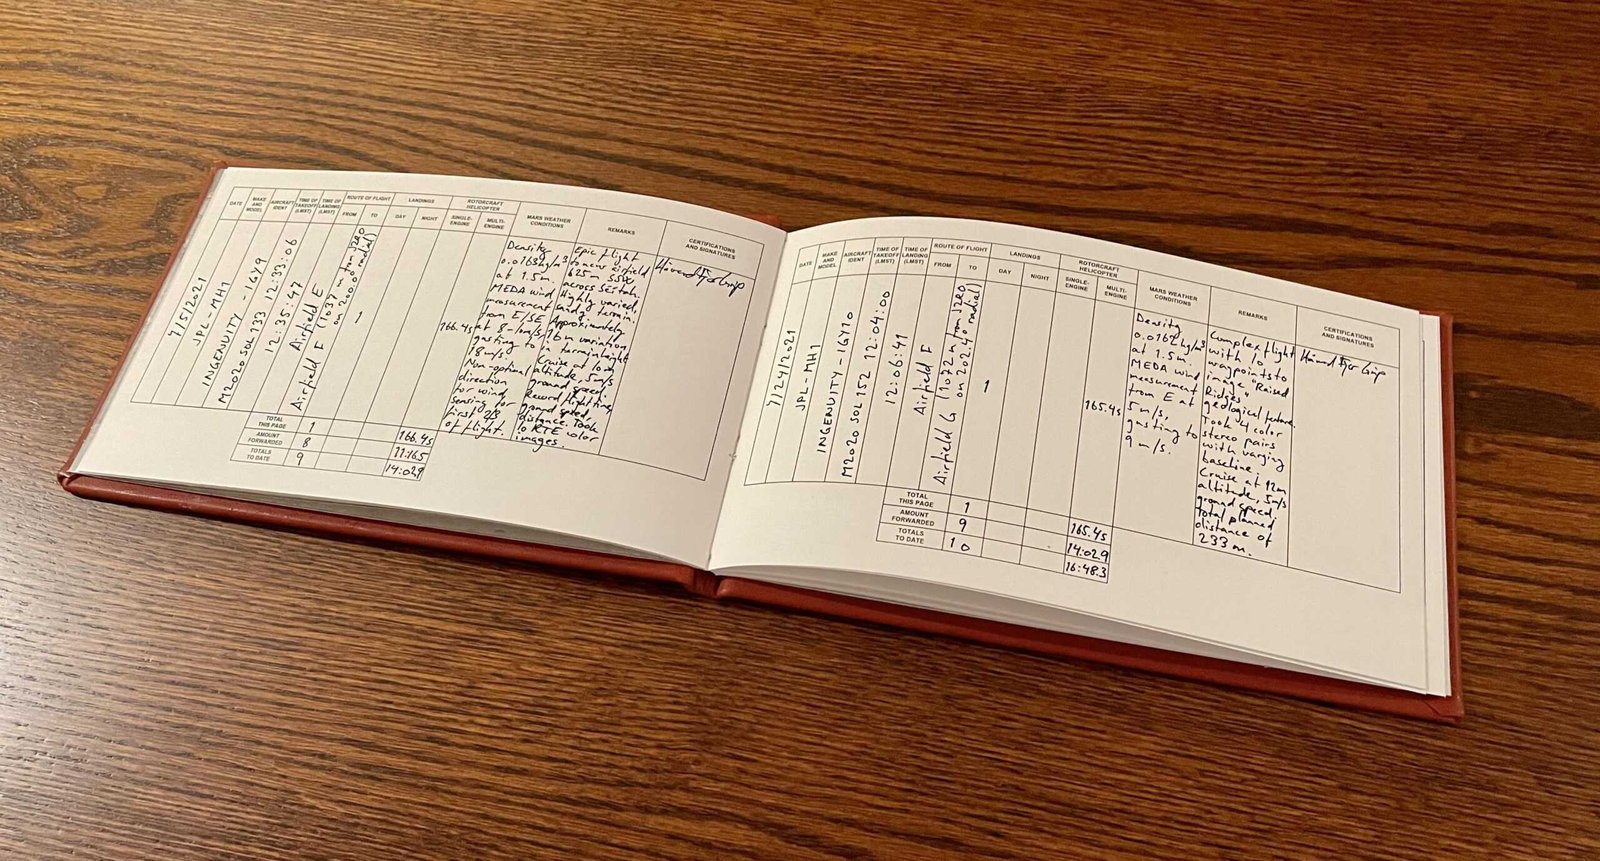 DATE
MAKE AND MODEL
AIRCRAFT IDENT
TIME OF TAKEOFF (LMST)
TIME OF LANDING (LMST)
ROUTE OF FLIGHT
FROM
TO
LANDINGS
DAY
NIGHT
ROTORCRAFT HELICOPTER
SINGLE-ENGINE
MULTI-ENGINE
MARS WEATHER CONDITIONS
REMARKS
CERTIFICATIONS AND SIGNATURES
7/5/2021
JPL-MH1
INGENUITY - IGY9
M2020 SOL 133 12:33:06
12:35:47
Airfield E
Airfield F (1037 m from JZRO
on 200.0° radial)
1
166.4s
Density
0.0163kg/m³
at 1.5m.
MEDA wind
measurement
from E/SE
at 8-10m/s,
gusting to
18m/s.
Non-optimal
direction
for wind
sensing for
first 2/3
of flight.
Epic flight
to new airfield
625m SSW,
across Séítah.
Highly varied,
sandy terrain.
Approximately
16m variation
in terrain height
Cruise at 10m
altitude, 5m/s
ground speed.
Record flight time,
ground speed,
distance. Took
10 RTE color
images.
Håvard Fjær Grip
TOTAL THIS PAGE 1 166.4s
AMOUNT FORWARDED 8 11:16.5
TOTALS TO DATE 9 14:02.9
DATE
MAKE AND MODEL
AIRCRAFT IDENT
TIME OF TAKEOFF (LMST)
TIME OF LANDING (LMST)
ROUTE OF FLIGHT
FROM
TO
LANDINGS
DAY
NIGHT
ROTORCRAFT HELICOPTER
SINGLE-ENGINE
MULTI-ENGINE
MARS WEATHER CONDITIONS
REMARKS
CERTIFICATIONS AND SIGNATURES
7/24/2021
JPL-MH1
INGENUITY - IGY10
M2020 SOL 152 12:04:00
12:06:41
Airfield F
Airfield G (1072 m from JZRO
on 202.4° radial)
1
165.4s
Density
0.0162kg/m³
at 1.5m.
MEDA wind
measurement
from E at
5m/s,
gusting to
9m/s.
Complex flight
with 10
waypoints to
image "Raised
Ridges"
geological feature.
Took 4 color
stereo pairs
with varying
baseline.
Cruise at 12m
altitude, 5m/s
ground speed
Total planned
distance of
233m.
Håvard Fjær Grip
TOTAL THIS PAGE 1 165.4s
AMOUNT FORWARDED 9 14:02.9
TOTALS TO DATE 10 16:48.3